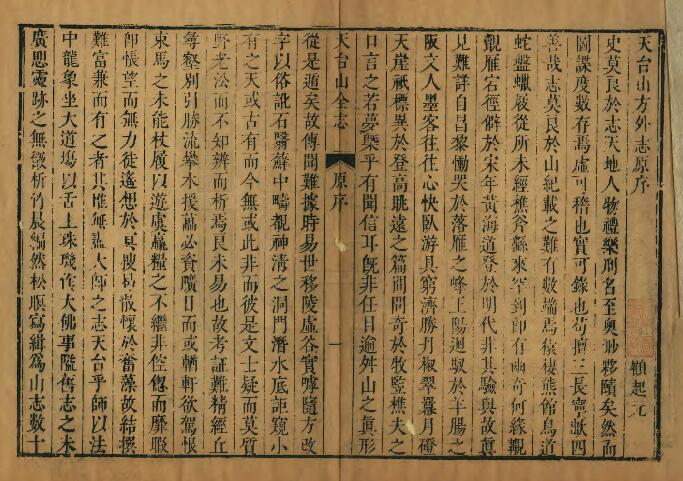 天台山方外志原序
顧起元
史莫良於志天地人物禮樂刑名至奧眇夥賾矣然而
圖諜度數存焉虛可稽也實可錄也苟擅三長寧歉四
善哉志莫艮於山紀載之難有數端焉猿棲熊館鳥道
蛇盤蠟屐從所未經樵斧繇來罕到即有幽奇何緣覯
覿雁宕徑僻於宋年黃海道登於明代非其驗與故眞
見難詳自昌黎慟哭於落雁之峰王陽迴馭於羊腸之
阪文人墨客往往心快臥游具窮濟勝丹椒翠羃月磴
天崖祇標異於登高眺遠之篇間問奇於牧豎樵夫之
口言之若夢槩乎有聞信耳旣非任目逾舛山之眞形
天台山全志
原序
一
從是遁矣故傳聞難據時易世移陵虛谷實嘘隨方改
字以俗訛石翳蘚中疇覩神清之洞門潛水底詎窺小
有之天或古有而今無或此非而彼是文士疑而莫質
野老訟而不知辨而析焉良未易也故考証難精經丘
尋壑別引勝流攀木援蘿必資曠日而或輶軒欲駕恨
束馬之未能杖屨以遊虞羸糧之不繼非倥偬而靡暇
即悵望而無力徒遙想於冥搜易散懷於奮藻故結撰
難富兼而有之者其惟無盡大師之志天台乎師以法
中龍象坐大道塲以舌上珠璣作大佛事隘舊志之未
廣思靈跡之無徵析竹晨編然松暝寫緝爲山志數十